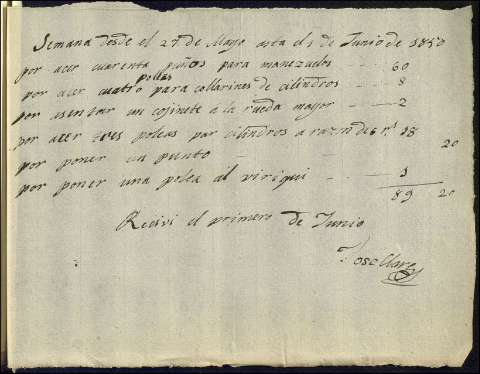 Semana desde el 27 de Mayo asta el 1 de Junio de 1850
por acer cuarenta puños para manezuelos - - 60
por acer cuatro poleas para collarines de cilindros - - 8
por asentar un cojinete a la rueda mayor - - 2
por acer tres poleas par cilindros a razn de 6 rs 18
por poner un punto - - 20
por poner una polea al viriqui - - 1
89 20
Recivi el primero de Junio
Jose